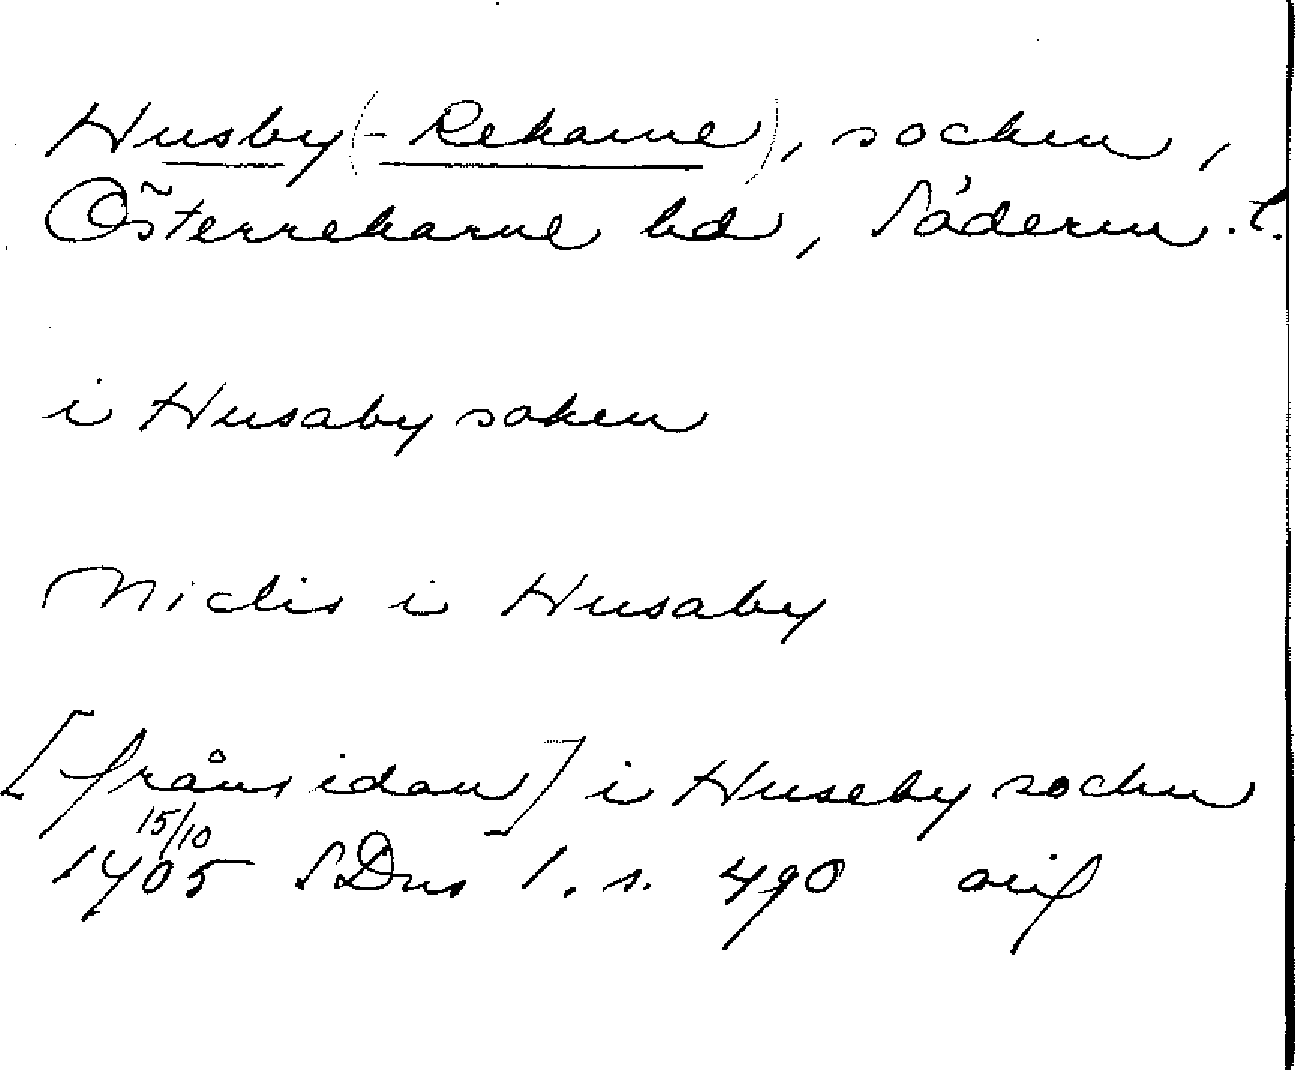 Husby(-Rekarne), socken,
Österrekarne hd, Söderm. l.
i Husaby soken
Niclis i Husaby
[frånsidan] i Huseby socken
15/10
1405 SDns 1. s. 490 orig